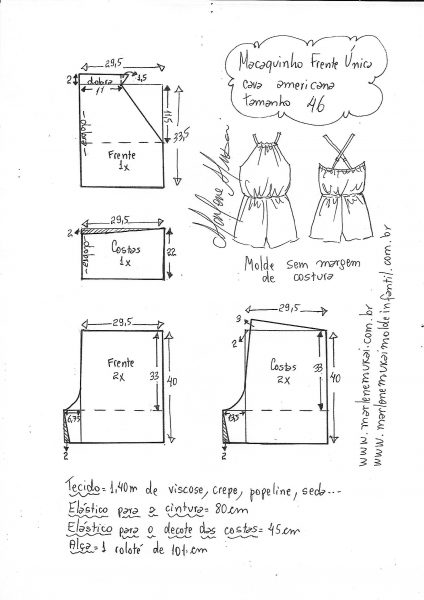 Macaquinho Frente Única
cava americana
tamanho 46
29,5
2
dobra
1,5
11
11,5
33,5
dobra
Frente
1x
Marlene Mukai
29,5
2
dobra
Costas
1x
22
Molde sem margem
de costura
29,5
Frente
2x
33
40
6,75
2
29,5
3
2
Costas
2x
33
40
2
www.marlenemukai.com.br
www.marlenemukaimoldeinfantil.com.br
Tecido= 1,40m de viscose, crepe, popeline, seda...
Elástico para a cintura= 80cm
Elástico para o decote das costas= 45cm
Alça= 1 rolotê de 101cm